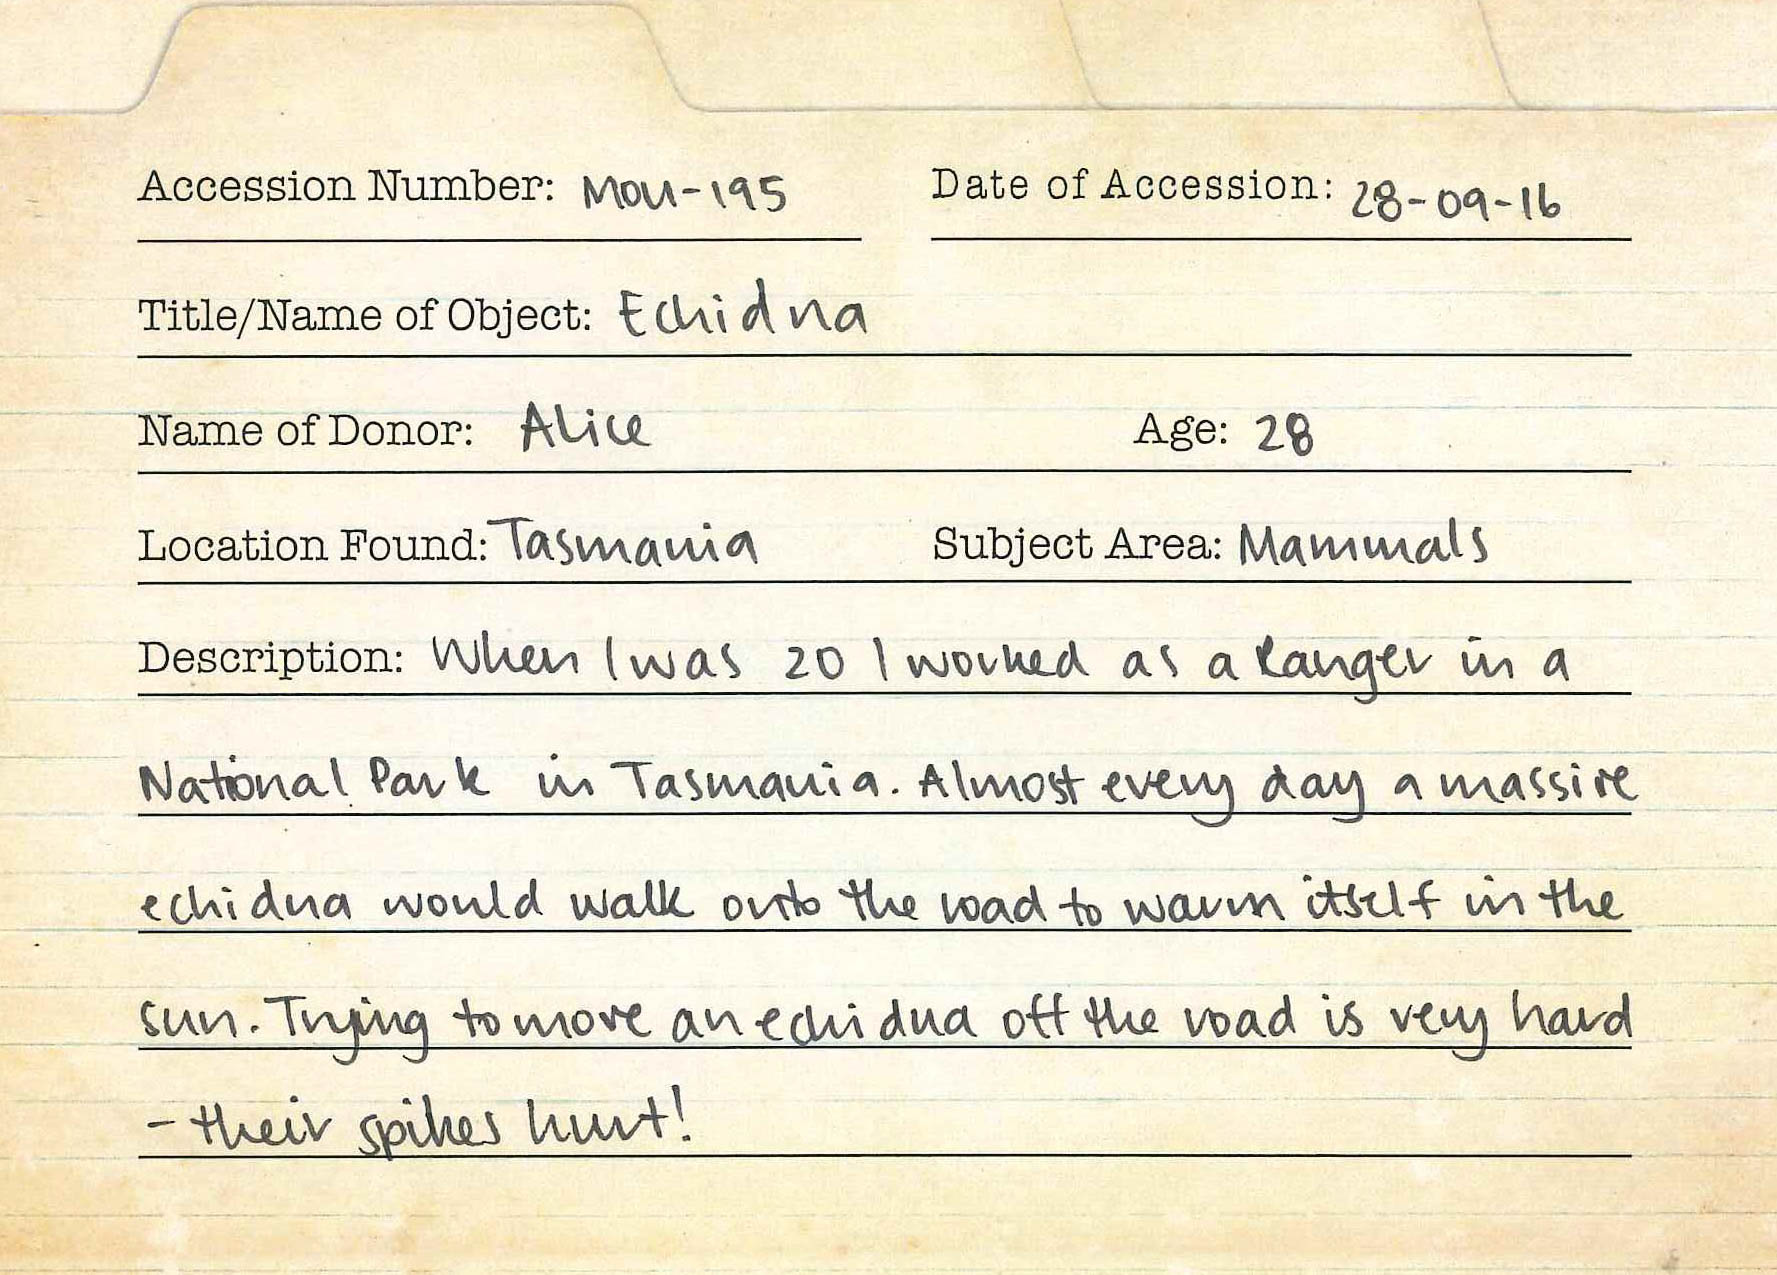 Accession Number: MOU-195 Date of Accession: 28-09-16
Title/Name of Object: Echidna
Name of Donor: Alice Age: 28
Location Found: Tasmania Subject Area: Mammals
Description: When I was 20 I worked as a Ranger in a
National Park in Tasmania. Almost every day a massive
echidna would walk onto the road to warm itself in the
sun. Trying to move an echidna off the road is very hard
- their spikes hurt!